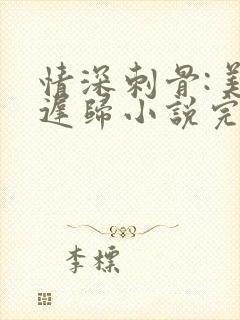 情深刺骨:美
遲歸小說完
李標